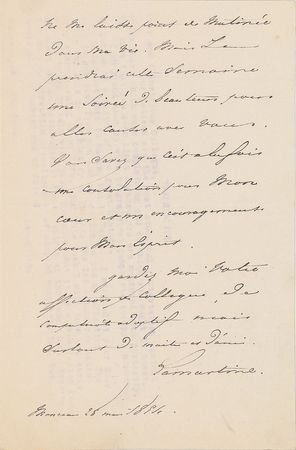 ne me laisse point de matinée
dans ma vie. Mais Je
prendrai cette Semaine
une Soirée de pour
aller causer avec vous.
Vous Savez que c'est à la fois
une consolation pour Mon
cœur et un encouragement
pour Mon Esprit.
gardez moi votre
affection de Collègue, de
compatriote adoptif mais
Surtout de maître et d'ami.
Lamartine.
Monceau 28 mai 1854.